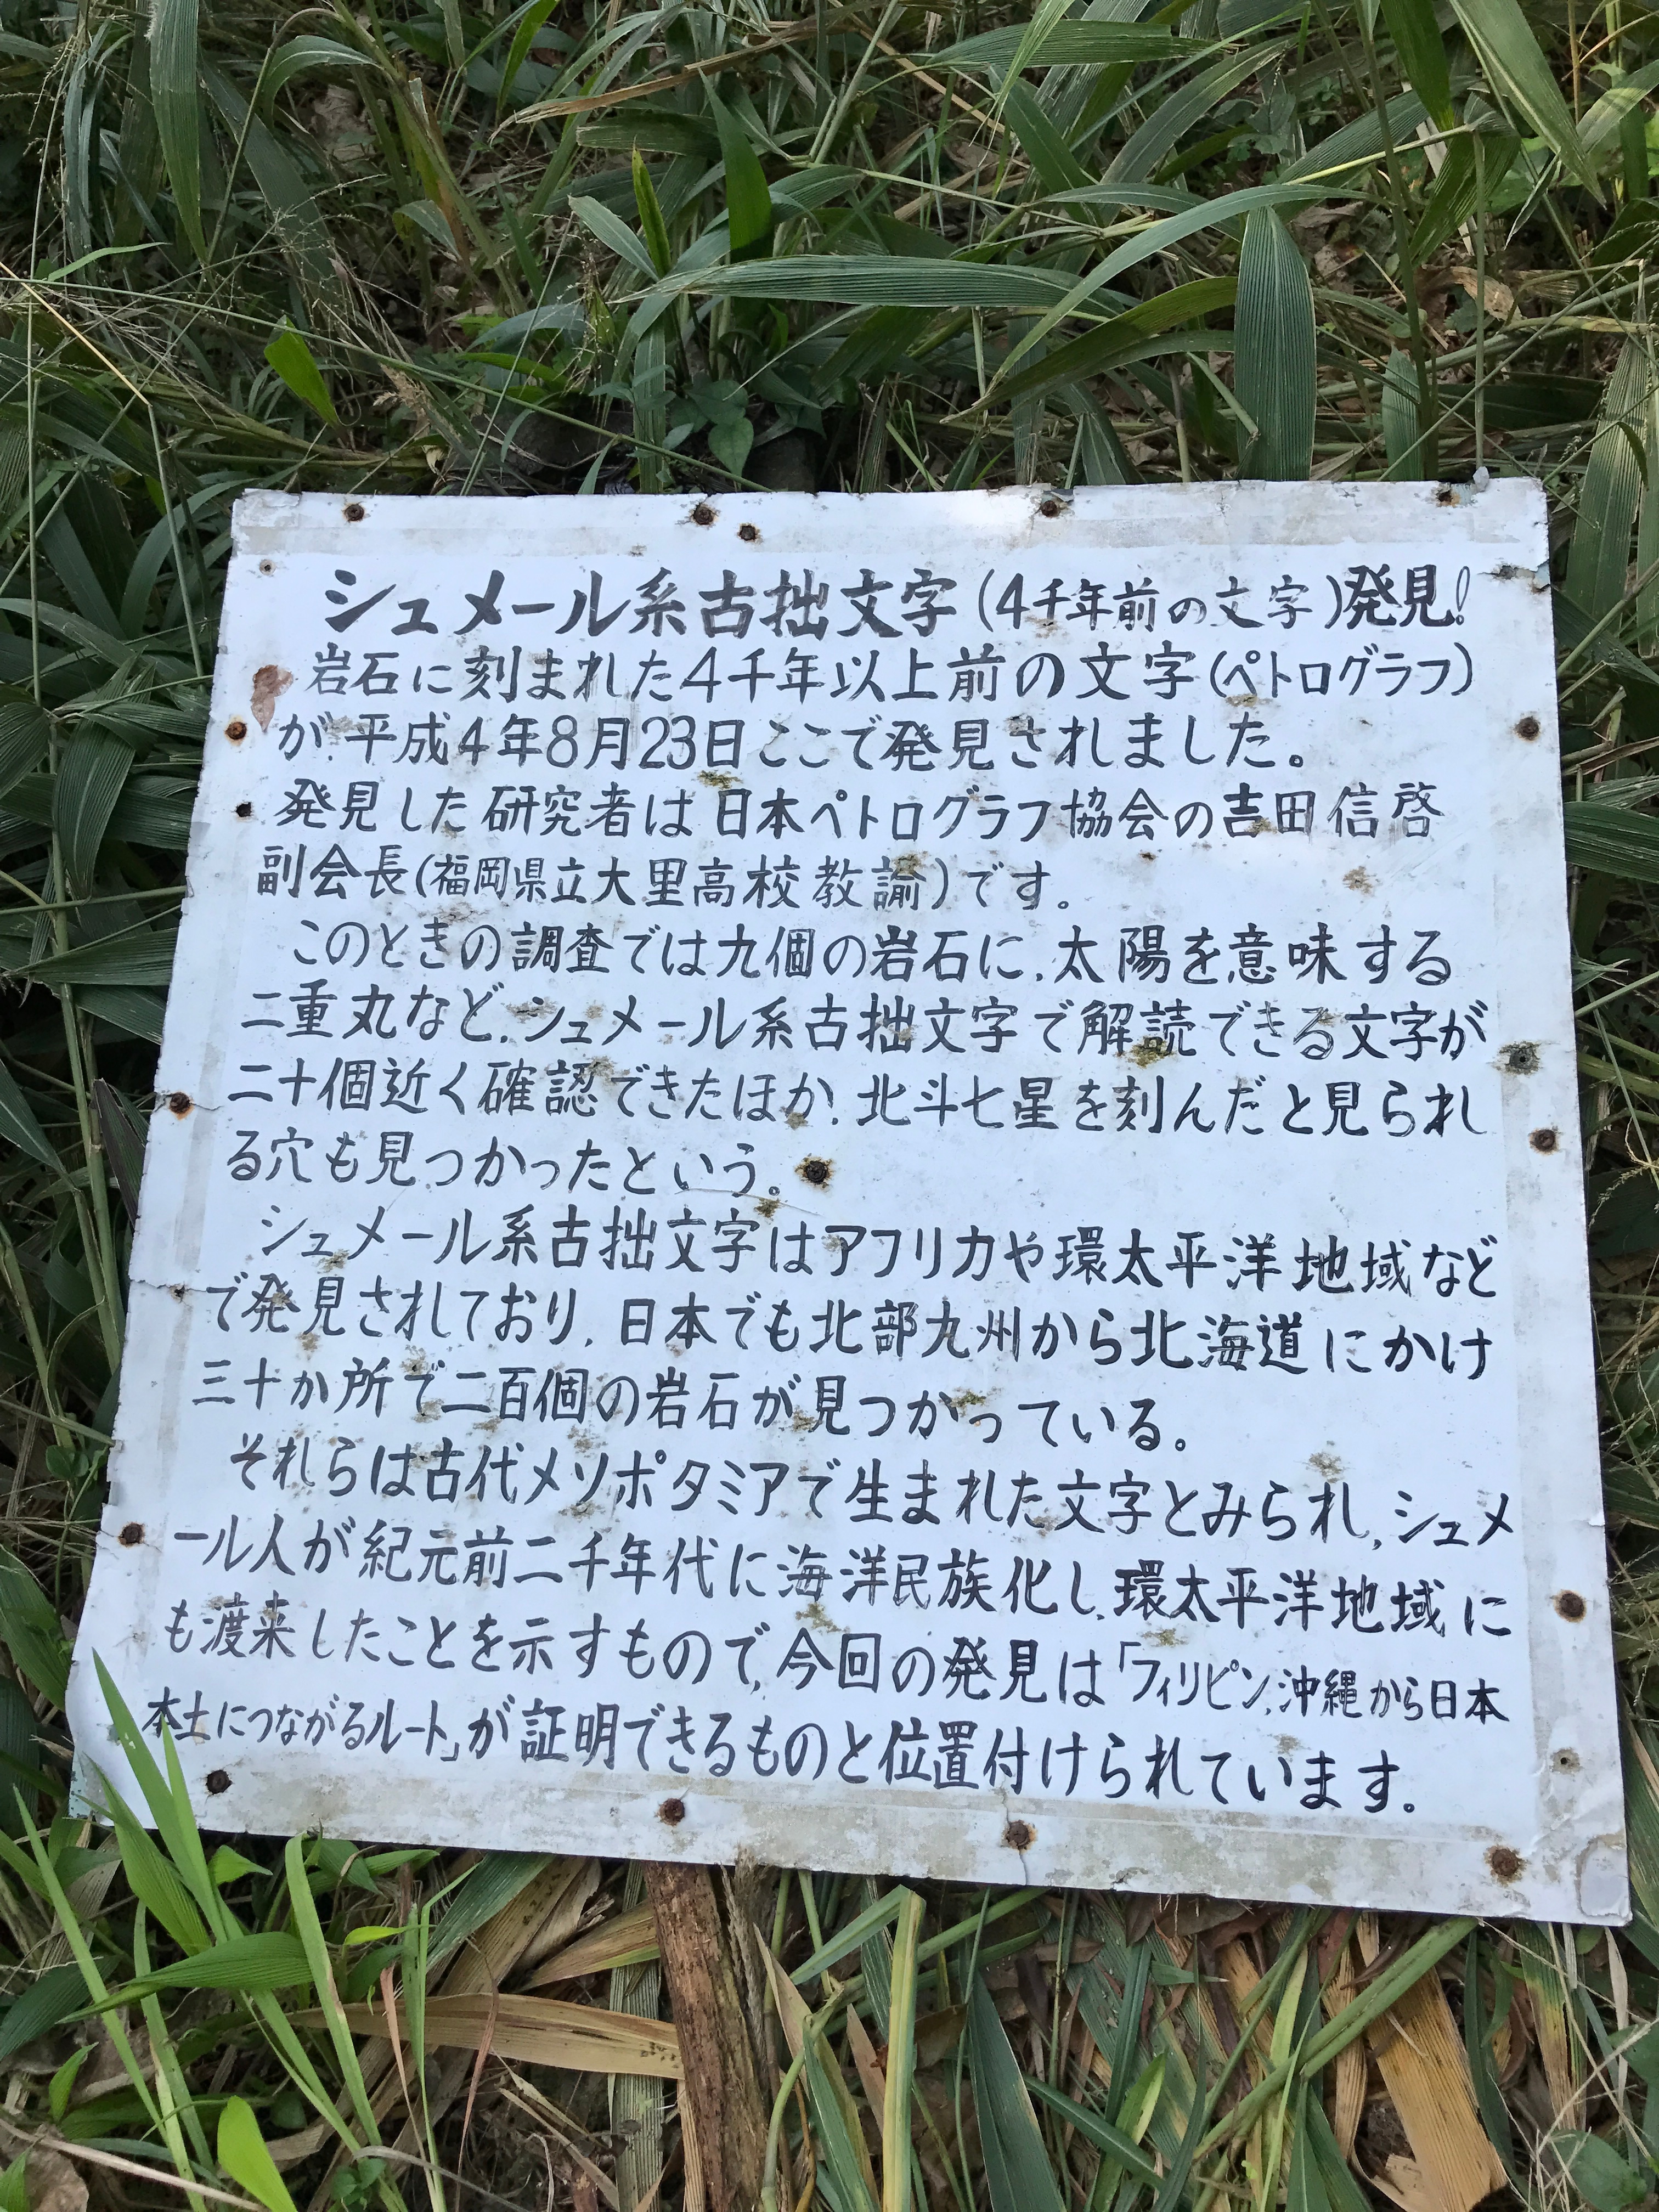 シュメール系古拙文字(4千年前の文字)発見!
岩石に刻まれた4千年以上前の文字(ペトログラフ)
が、平成4年8月23日ここで発見されました。
発見した研究者は日本ペトログラフ協会の吉田信啓
副会長(福岡県立大里高校教諭)です。
このときの調査では九個の岩石に、太陽を意味する
二重丸など、シュメール系古拙文字で解読できる文字が
二十個近く確認できたほか、北斗七星を刻んだと見られ
る穴も見つかったという。
シュメール系古拙文字はアフリカや環太平洋地域など
で発見されており、日本でも北部九州から北海道にかけ
三十か所で二百個の岩石が見つかっている。
それらは古代メソポタミアで生まれた文字とみられ、シュメ
ール人が紀元前二千年代に海洋民族化し、環太平洋地域に
も渡来したことを示すもので、今回の発見は「フィリピン、沖縄から日本
本土につながるルート」が証明できるものと位置付けられています。